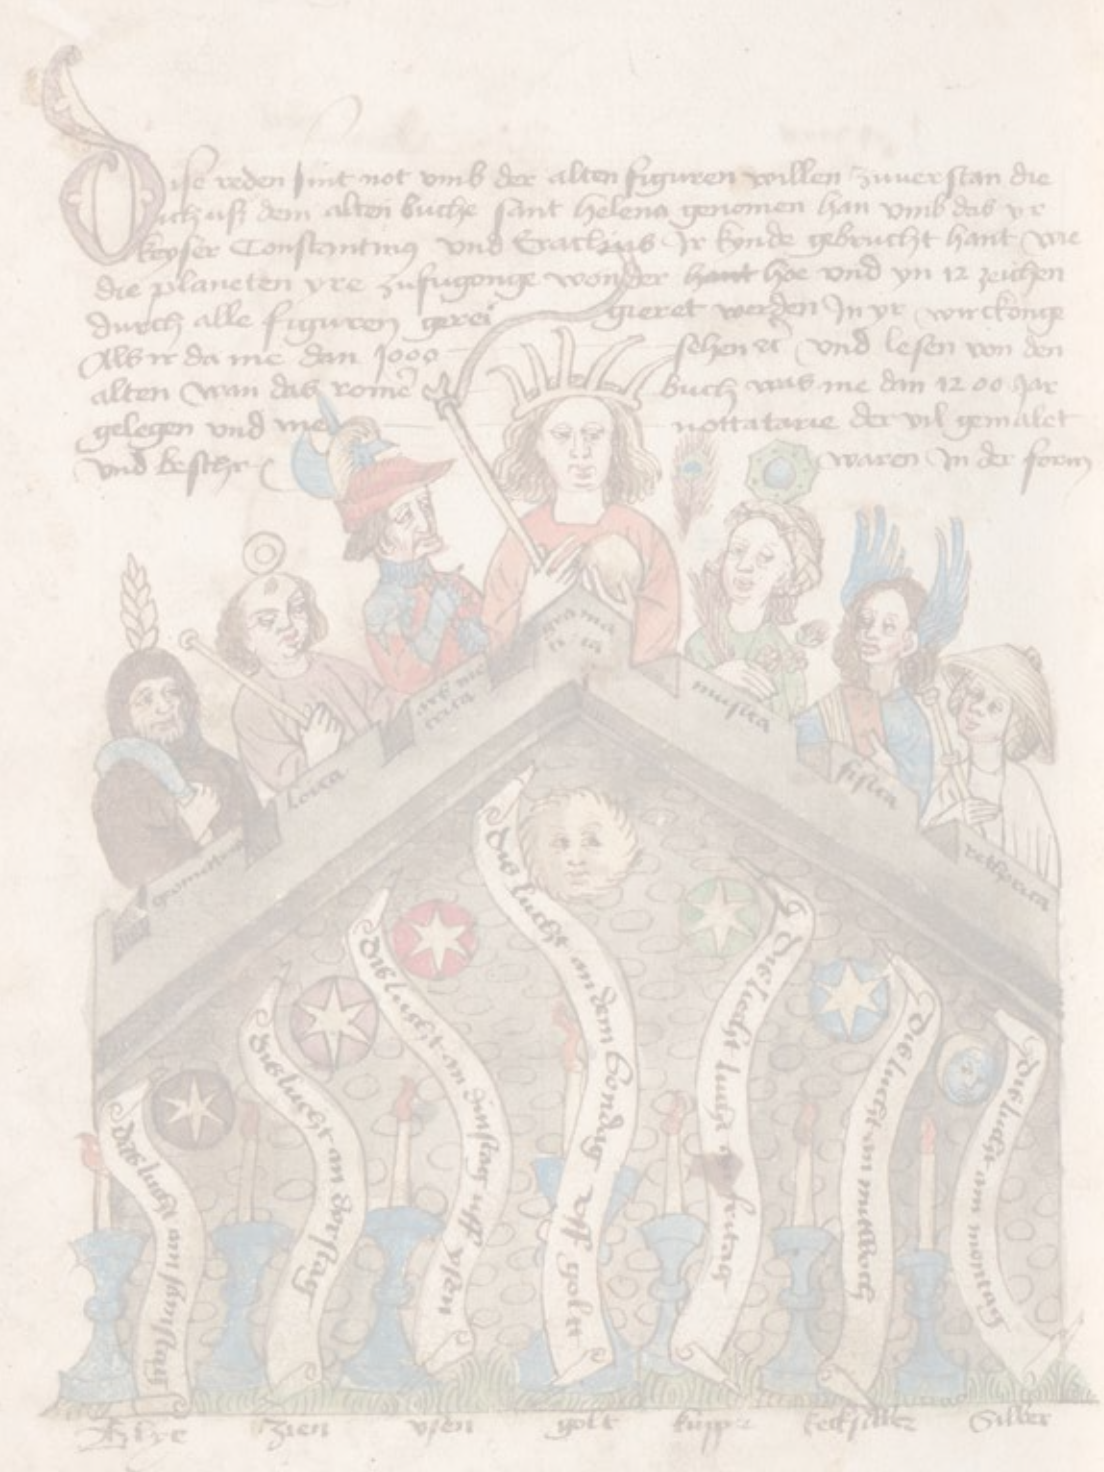 Dise reden sint not vmb der alten figuren willen zuuerstan die
ich uß dem alten buche sant helena genomen han vmb das yr
keyser Constantinus vnd Eraclius Ir kynde gebrucht hant wie
die planeten yre zufugonge wonder hant hoe vnd yn 12 zeichen
durch alle figuren gerei gieret werden In yr wirckonge
Als ir da me dan 1000 sehen vnd lesen von den
alten wan das rome buch was me dan 1200 Jar
gelegen vnd me nottatarie der vil gemalet
vnd beschr waren In der form
grama
tica
arismetica
musica
loica
fisica
geometria
rethorica
Dis lucht an dem sondag vff golt
Dis lucht am dinstag uff ysen
Dis lucht
frytag
Dis lucht an dorstag
Dis lucht am mittwoch
Dis lucht am samstag
Dis lucht am montag
Blye zien ysen golt kupper kecksilber Silber